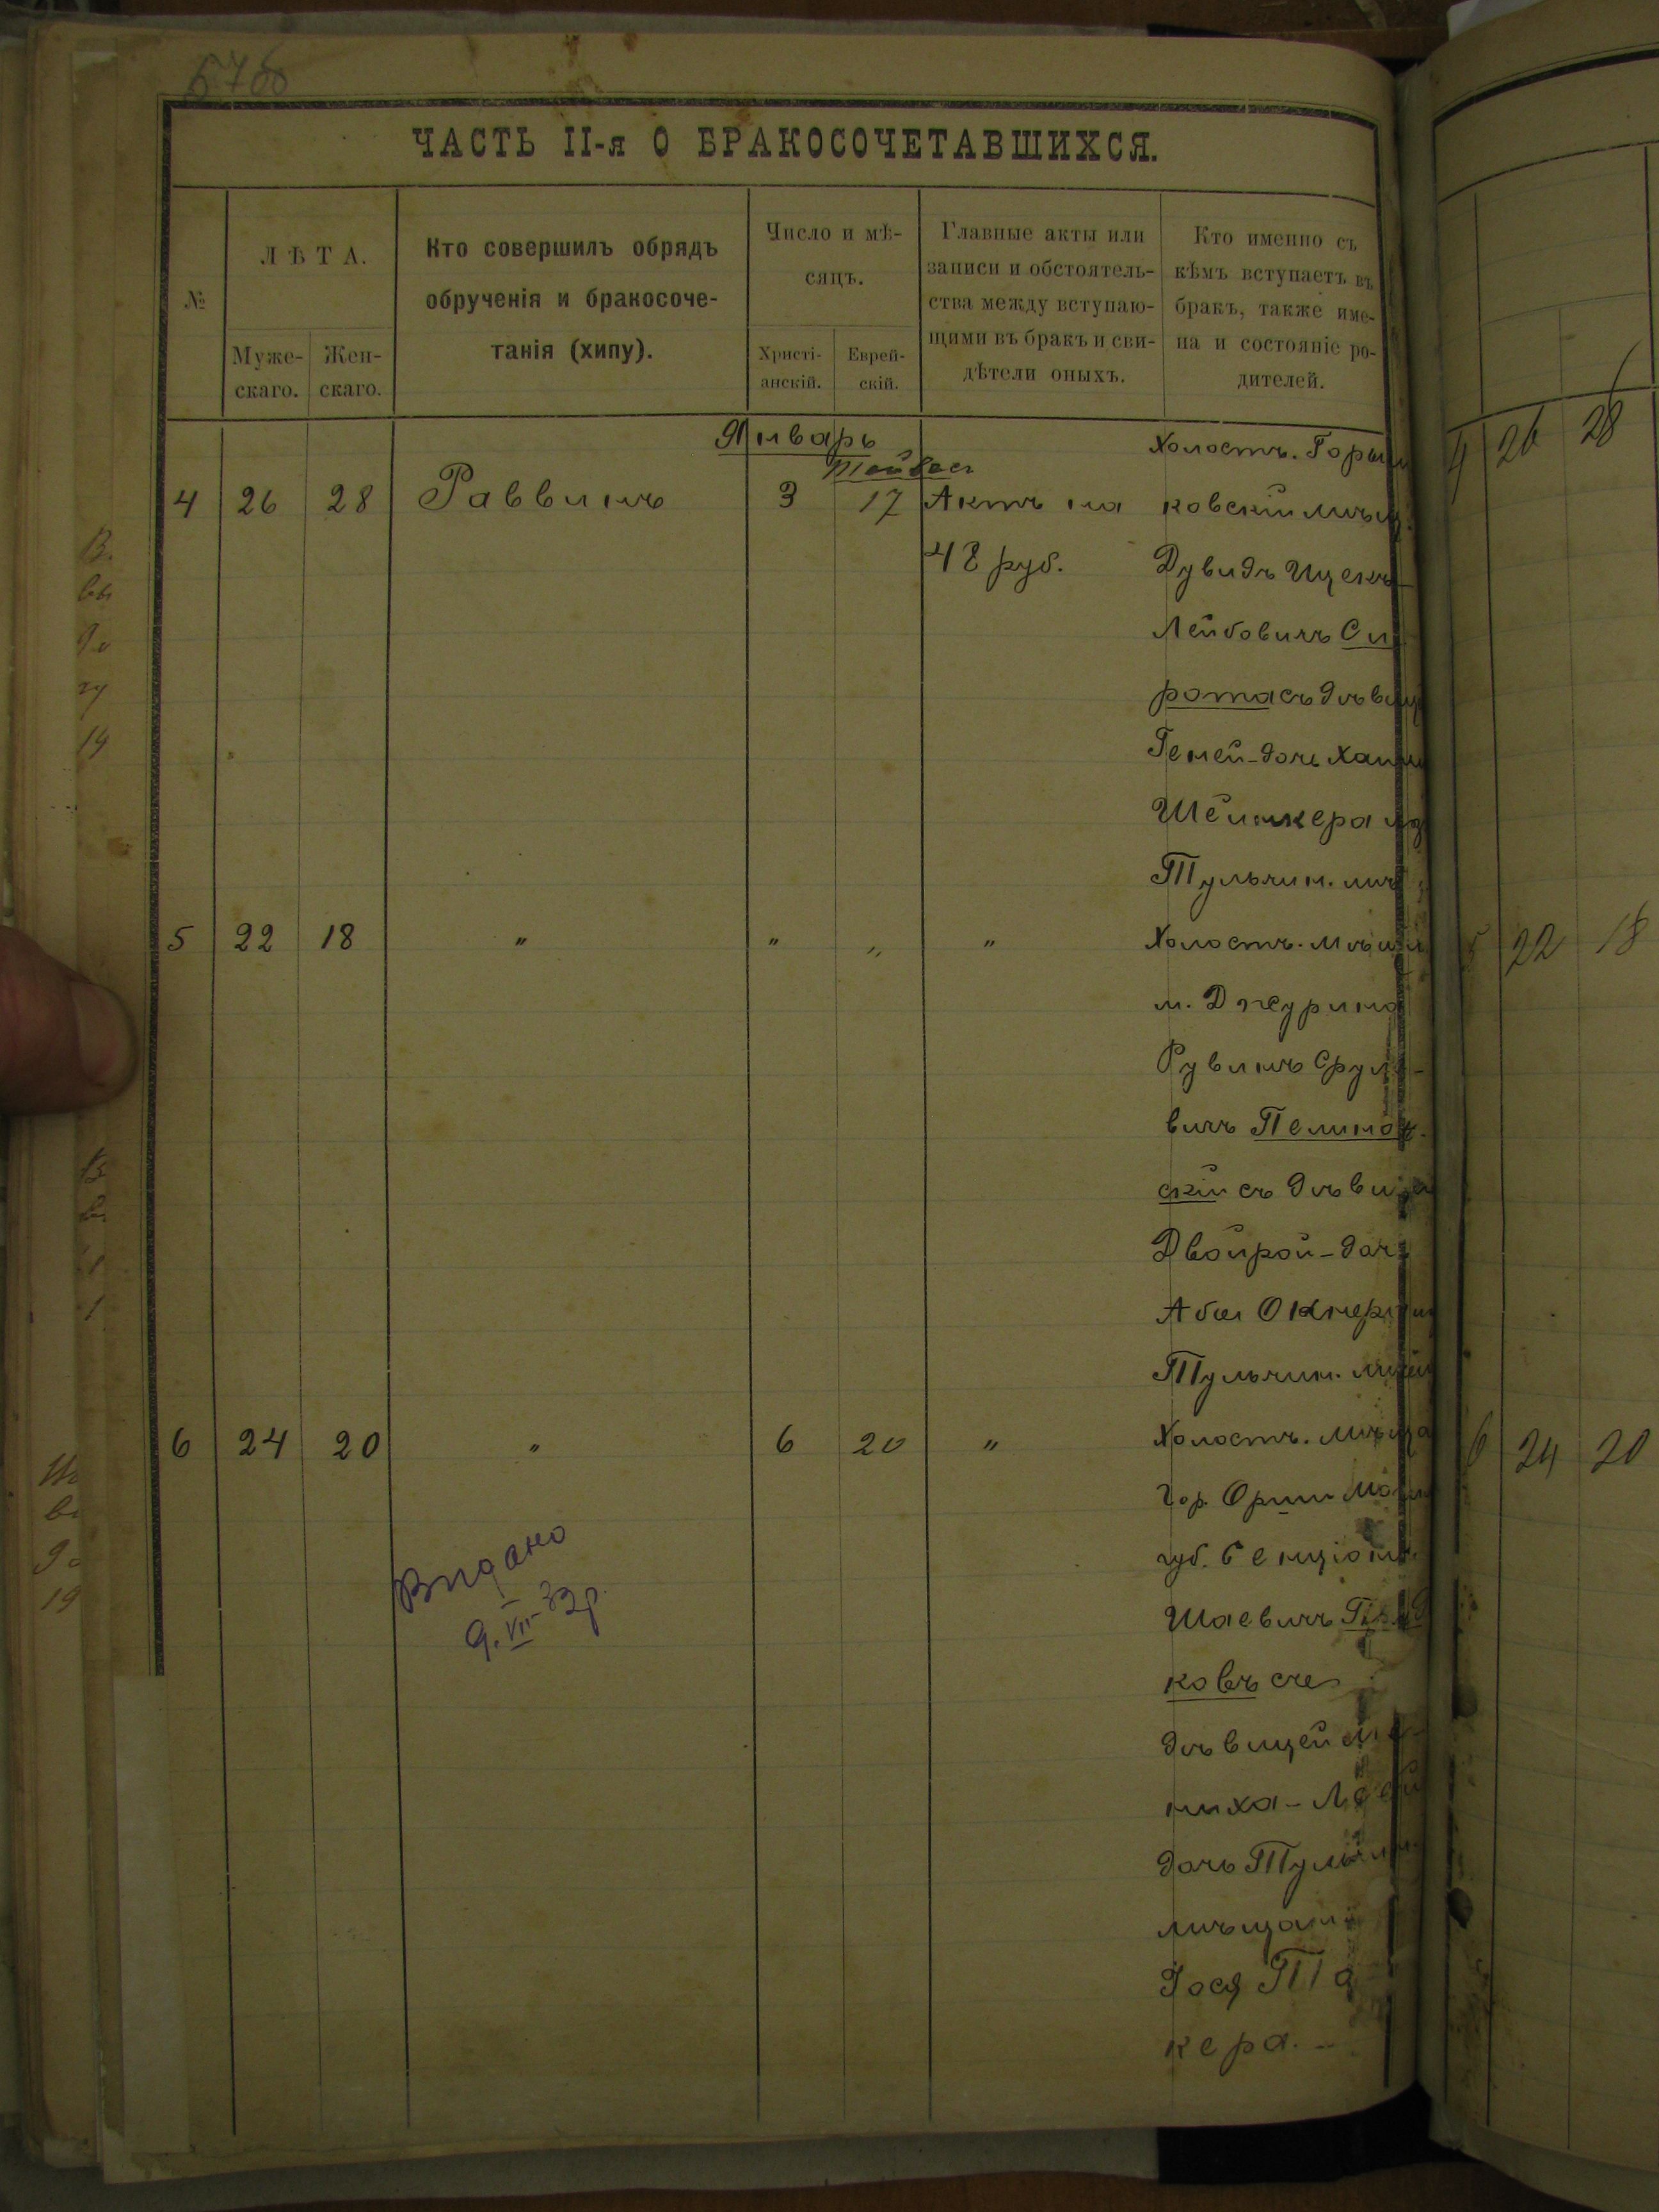 ЧАСТЬ II-я О БРАКОСОЧЕТАВШИХСЯ.
№
ЛѢТА.
Муже-
скаго.
Жен-
скаго.
Кто совершилъ обрядъ
обрученія и бракосоче-
танія (хипу).
Число и мѣ-
сяцъ.
Христі-
анскій.
Еврей-
скій.
Главные акты или
записи и обстоятель-
ства между вступаю-
щими въ бракъ и сви-
дѣтели оныхъ.
Кто именно съ
кѣмъ вступаетъ въ
бракъ, также име-
на и состояніе ро-
дителей.
Январь
Тейвес
4 26 28 Раввинъ 3 17 Актъ на
48 руб.
Холостъ.
ковскій мѣщ.
Дувидъ Ицекъ-
Лейбовичъ Си
рота съ дѣвиц
Геней-дочь Хаим
Шейнкера из
Тульчин. мѣщ
5 22 18 " " " "
Холостъ. мѣщан
м. Джурина
Рувинъ Срул
вичъ Пелинов
скій съ дѣвиц
Двойрой-доч
Абы Окнер
Тульчин.
6 24 20 " 6 20 "
Холостъ. мѣща
гор. Орши
губ. Бенціонъ
Шаевичъ
ковъ съ
дѣвицей
ниха-
дочь Тульчин.
мѣщан
Іося Та
кера.
Видано
9. VII-33р.
4 26 28
5 22 18
6 24 20